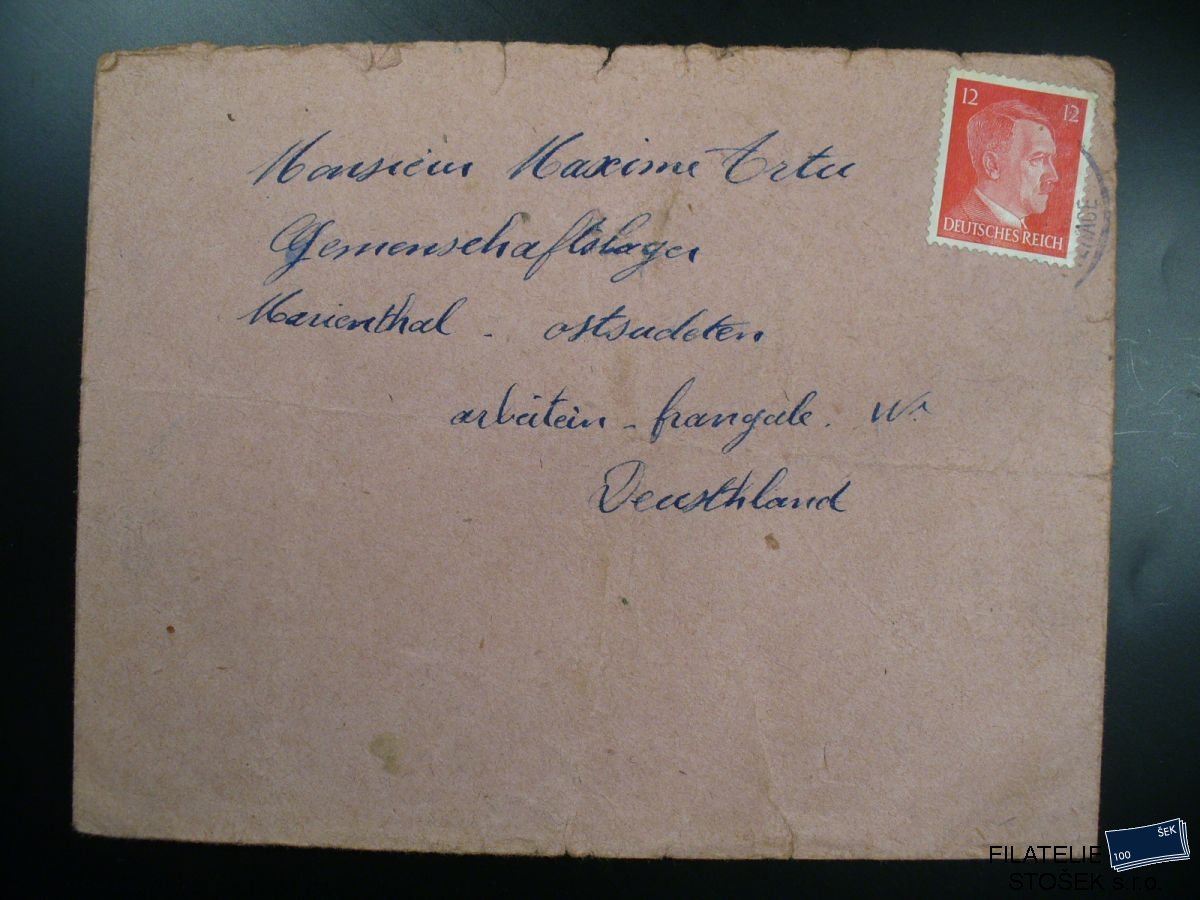 12 12
DEUTSCHES REICH
Monsieur Maxime Ortu
Gemenschaftslager
Marienthal - ostsudeten
arbeitein - frangale. Wn
Deusthland
FILATELIE
STOŠEK s.r.o.
100 ŠEK